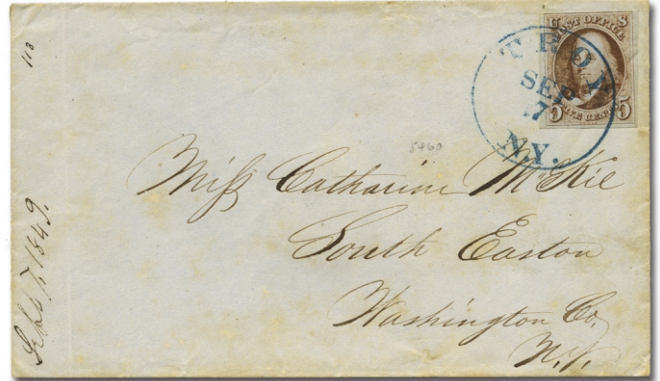 113
Sept 7, 1849.
U S
POST OFFICE
FIVE CENTS
5 5
TROY
SEP
7
N.Y.
5460
Miss Catharine McKie
South Easton
Washington Co.
N.Y.